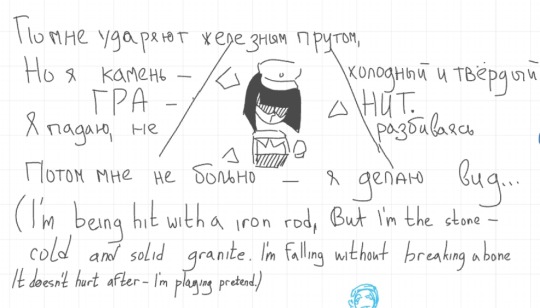 По мне ударяют железным прутом,
Но я камень – холодный и твёрдый
ГРА – НИТ.
Я падаю, не разбиваясь
Потом мне не больно – я делаю вид...
(I'm being hit with a iron rod, But I'm the stone –
cold and solid granite. I'm falling without breaking a bone
It doesn't hurt after – I'm playing pretend.)